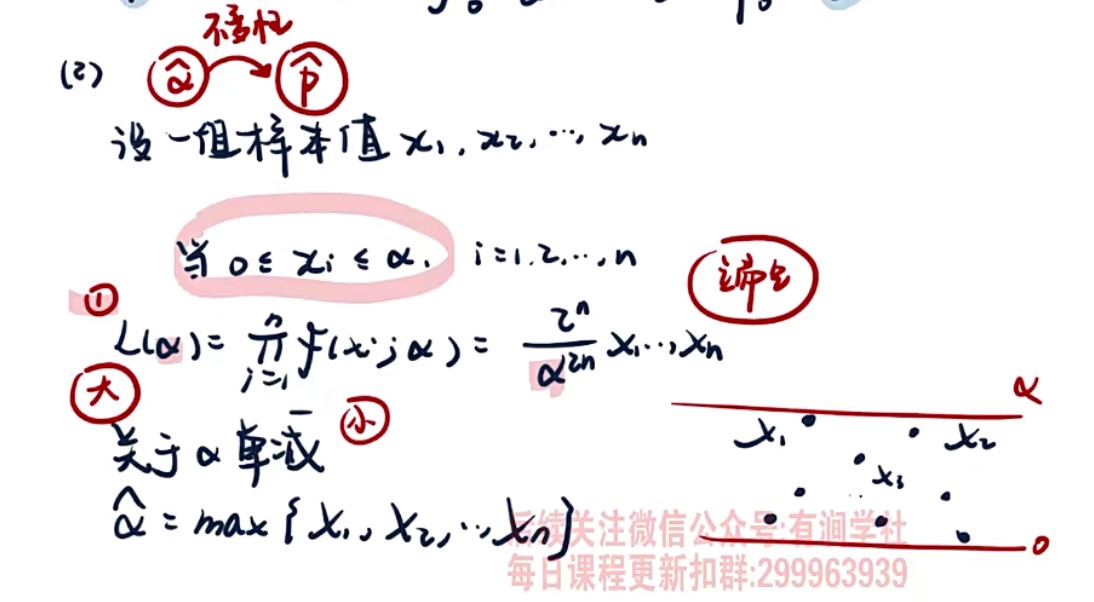 不变性
(2) α̂ p̂
设一组样本值 x₁, x₂, ⋯, xₙ
当 0 ≤ xᵢ ≤ α, i=1,2,⋯,n
①
L(α) = ∏ᵢ₌₁ⁿ f(xᵢ;α) = 2ⁿ/α²ⁿ x₁⋯,xₙ
大
关于α单减 小
α̂ = max{X₁, X₂, ⋯, Xₙ}
α
x₁ x₂
x₃
0
后续关注微信公众号:有涧学社
每日课程更新扣群:299963939